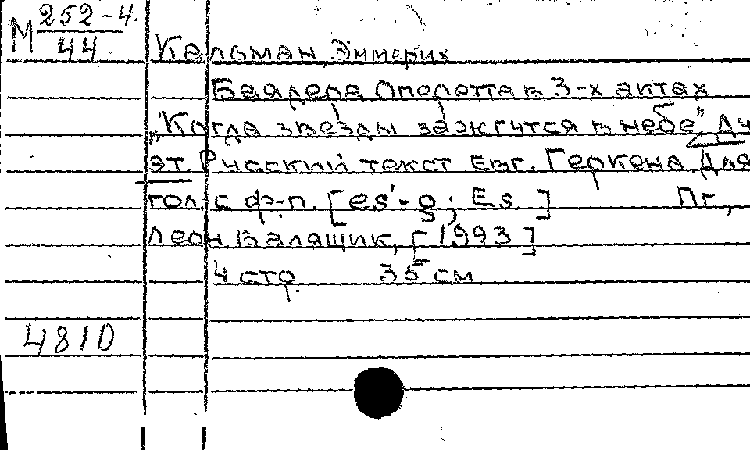 М 252-4
44
Кальман, Эммерих
Баядера Оперетта в 3-х актах
„Когда звезды зажгутся в небе" Ду
эт Русский текст Евг. Геркена Для
гол. с ф.-п. [es'-g; Es]   Пг.,
Леон. Валящик, [1993]
4 стр   35 см
4810